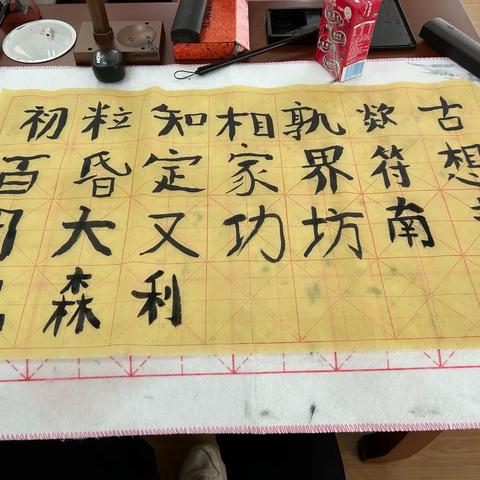 初粒知相孰欻古
百昏定家界符想
大又功坊南
森利